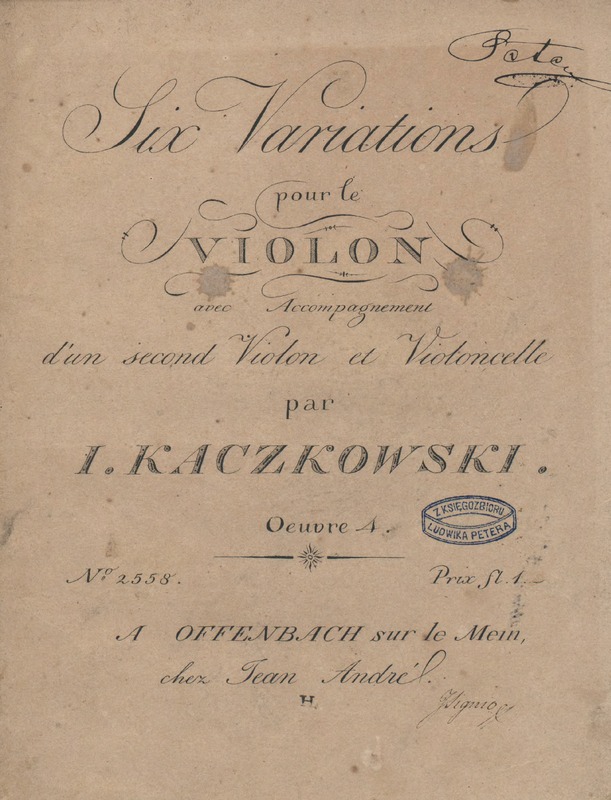 Peter
Six Variations
pour le
VIOLON
avec Accompagnement
d'un second Violon et Violoncelle
par
I. KACZKOWSKI.
Oeuvre 4.
Z KSIĘGOZBIORU
LUDWIKA PETERA
Nº 2558.
Prix fl. 1.—
A OFFENBACH sur le Mein,
chez Jean André.
H.